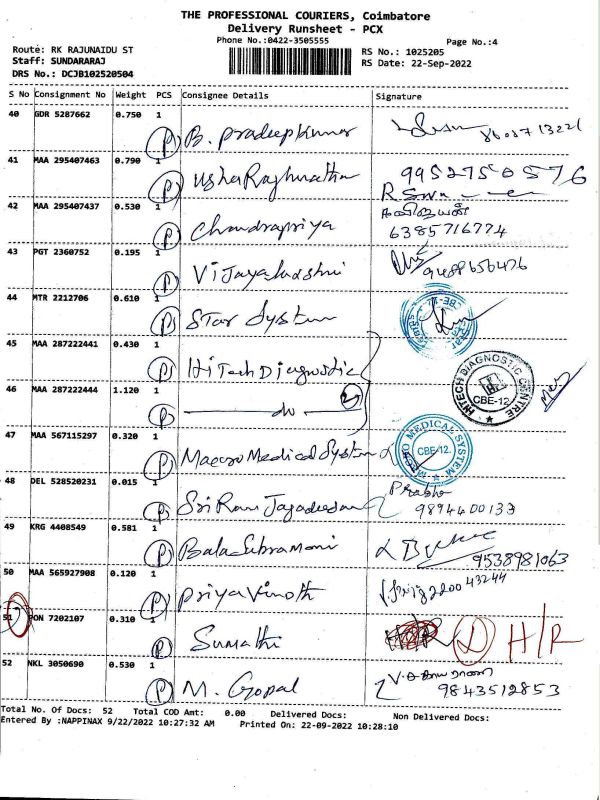 THE PROFESSIONAL COURIERS, Coimbatore
Delivery Runsheet - PCX
Phone No.:0422-3505555
Page No.:4
Route: RK RAJUNAIDU ST
RS No.: 1025205
Staff: SUNDARARAJ
RS Date: 22-Sep-2022
DRS No.: DCJB102520504
S No Consignment No Weight PCS Consignee Details Signature
40 GDR 5287662 0.750 1
P B. Pradeepkumar
41 MAA 295407463 0.790 1
P Usha Raghunathan 9952750576
42 MAA 295407437 0.530 1
P Chandrapriya 6385716774
43 PGT 2360752 0.195 1
P Vijayalakshmi 9488656476
44 MTR 2212706 0.610 1
P Star System
45 MAA 287222441 0.430 1
P HiTech Diagnostic
HITECH DIAGNOSTIC CENTRE
CBE-12
46 MAA 287222444 1.120 1
P do 2
47 MAA 567115297 0.320 1
P Macro Medical System
MACRO MEDICAL SYSTEM
CBE-12
48 DEL 528520231 0.015 1
P Sri Ram Jagadeesan Prabhu
9894400133
49 KRG 4408549 0.581 1
P Bala Subramani 9538981063
50 MAA 565927908 0.120 1
P Priya Vinoth
51 PON 7202107 0.310 1
P Sumathi D H/R
52 NKL 3050690 0.530 1
P M. Gopal 9843512853
Total No. Of Docs: 52 Total COD Amt: 0.00 Delivered Docs: Non Delivered Docs:
Entered By :NAPPINAX 9/22/2022 10:27:32 AM Printed On: 22-09-2022 10:28:10